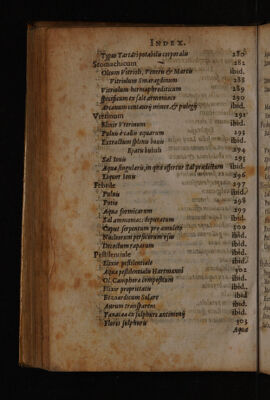 INDEX.
Typus Tartari potabilis corporalis 280
Stomachicum 281
Oleum Vitrioli, Veneris & Martis ibid.
Vitriolum Smaragdinum 288
Vitriolum hermaphroditicum 289
specificum ex sale armoniaco 290
Arcanum centaurij minor. & pulegij ibid.
Vterinum 291
Elixir Vterinum ibid.
Puluis è calis equarum 293
Extractum splenis bouis ibid.
Epatis bubuli 294
Sal Iouis 295
Aqua singularis, in qua assertus Sal præstatum ibid.
Liquor Iouis 296
Febrile 297
Puluis ibid.
Potio 298
Aqua formicarum 299
Sal ammoniac. depuratum ibid.
Caput serpentum pro amuleto 300
Nucleorum persicorum usus ibid.
Decoctum raparum ibid.
Pestilentiale ibid.
Elixir pestilentiale ibid.
Aqua pestilentialis Hartmanni 302
Ol. Camphoræ compositum ibid.
Elixir proprietatis ibid.
Bezoardicum Solare ibid.
Aurum transparens ibid.
Panacæa ex sulphure antimonij ibid.
Flores sulphuris 303
Aqua